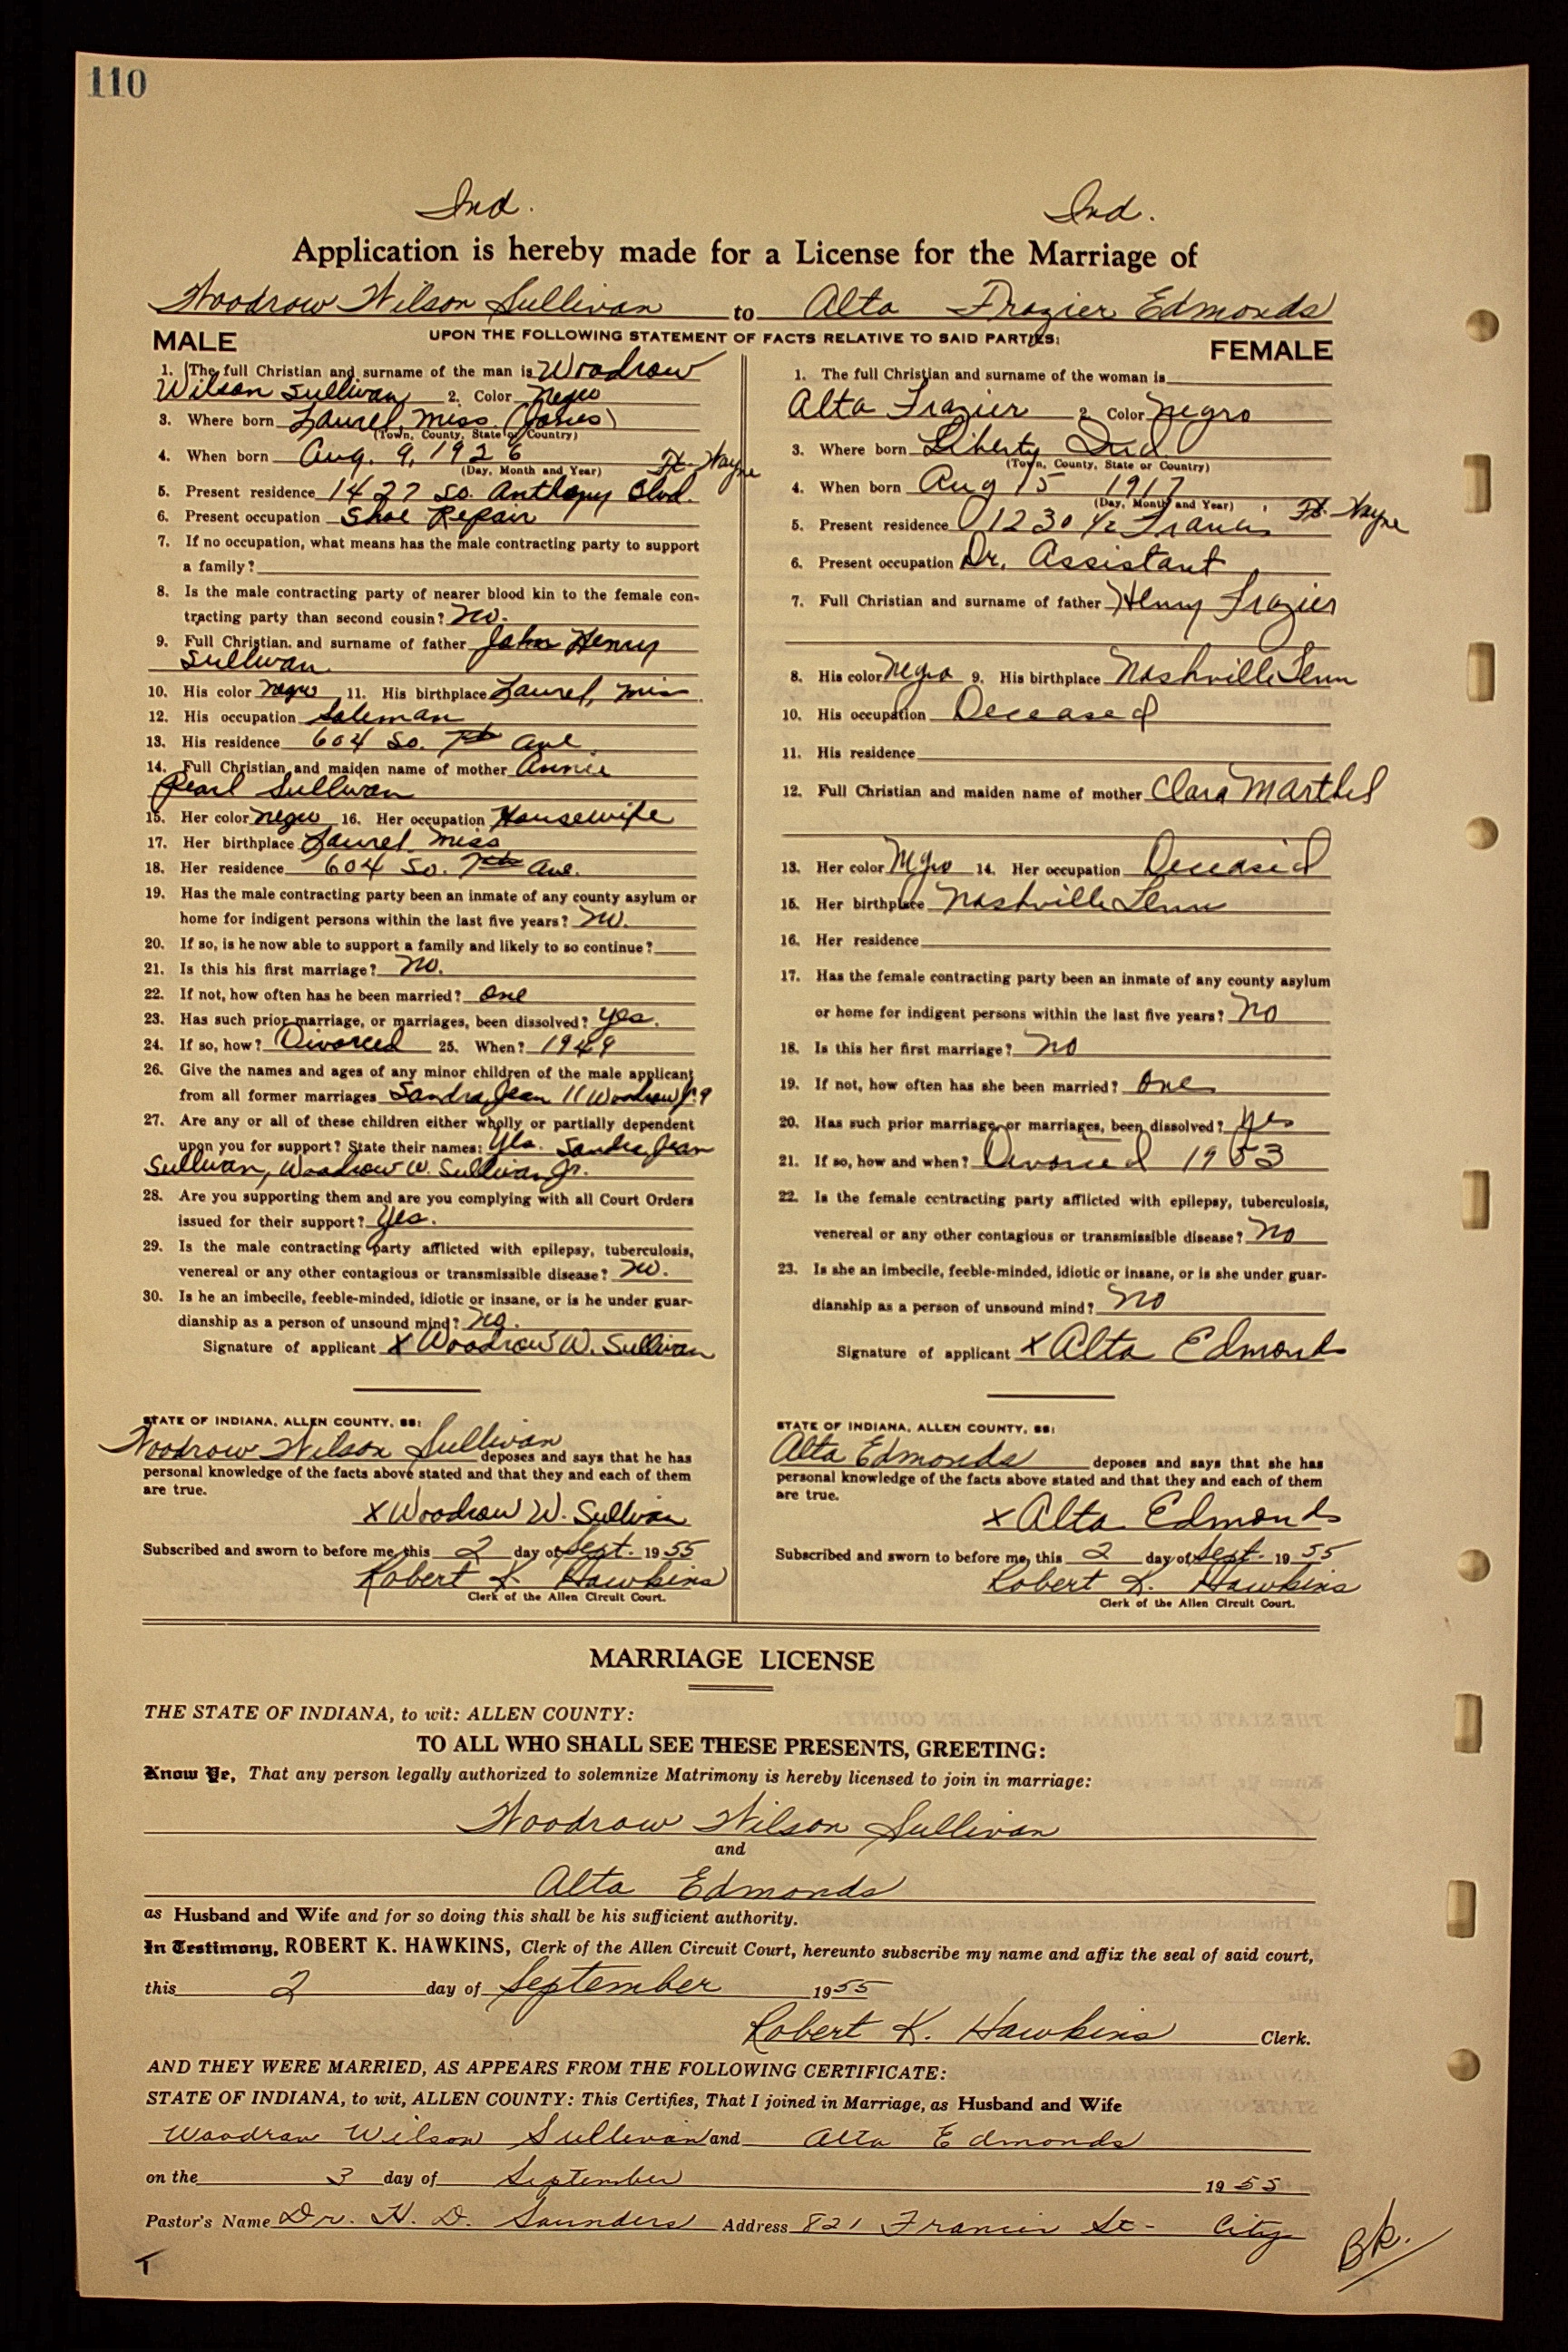 110
Ind. Ind.
Application is hereby made for a License for the Marriage of
Woodrow Wilson Sullivan to Alta Frazier Edmonds
UPON THE FOLLOWING STATEMENT OF FACTS RELATIVE TO SAID PARTIES:
MALE
1. The full Christian and surname of the man is Woodrow
Wilson Sullivan 2. Color Negro
3. Where born Laurel, Miss. (Jones)
(Town, County, State or Country)
4. When born Aug. 9, 1926
(Day, Month and Year) Ft. Wayne
5. Present residence 1427 So. Anthony Blvd.
6. Present occupation Shoe Repair
7. If no occupation, what means has the male contracting party to support
a family?
8. Is the male contracting party of nearer blood kin to the female con-
tracting party than second cousin? No.
9. Full Christian and surname of father John Henry
Sullivan.
10. His color Negro 11. His birthplace Laurel, Miss
12. His occupation Saleman
13. His residence 604 So. 7th Ave.
14. Full Christian and maiden name of mother Annie
Pearl Sullivan
15. Her color Negro 16. Her occupation Housewife
17. Her birthplace Laurel Miss
18. Her residence 604 So. 7th Ave.
19. Has the male contracting party been an inmate of any county asylum or
home for indigent persons within the last five years? No.
20. If so, is he now able to support a family and likely to so continue?
21. Is this his first marriage? No.
22. If not, how often has he been married? One
23. Has such prior marriage, or marriages, been dissolved? Yes.
24. If so, how? Divorced 25. When? 1949
26. Give the names and ages of any minor children of the male applicant
from all former marriages Sandra Jean 11 Woodrow Jr. 9
27. Are any or all of these children either wholly or partially dependent
upon you for support? State their names: Yes. Sandra Jean
Sullivan, Woodrow W. Sullivan Jr.
28. Are you supporting them and are you complying with all Court Orders
issued for their support? Yes.
29. Is the male contracting party afflicted with epilepsy, tuberculosis,
venereal or any other contagious or transmissible disease? No.
30. Is he an imbecile, feeble-minded, idiotic or insane, or is he under guar-
dianship as a person of unsound mind? No.
Signature of applicant x Woodrow W. Sullivan
STATE OF INDIANA, ALLEN COUNTY, SS:
Woodrow Wilson Sullivan deposes and says that he has
personal knowledge of the facts above stated and that they and each of them
are true.
x Woodrow W. Sullivan
Subscribed and sworn to before me, this 2 day of Sept. 1955
Robert K. Hawkins
Clerk of the Allen Circuit Court.
FEMALE
1. The full Christian and surname of the woman is
Alta Frazier 2. Color Negro
3. Where born Liberty Ind.
(Town, County, State or Country)
4. When born Aug 15 1917
(Day, Month and Year) Ft. Wayne
5. Present residence 1230 1/2 Francis
6. Present occupation Dr. Assistant
7. Full Christian and surname of father Henry Frazier
8. His color Negro 9. His birthplace Nashville Tenn
10. His occupation Deceased
11. His residence
12. Full Christian and maiden name of mother Clara
13. Her color Negro 14. Her occupation Deceased
15. Her birthplace Nashville Tenn
16. Her residence
17. Has the female contracting party been an inmate of any county asylum
or home for indigent persons within the last five years? No
18. Is this her first marriage? No
19. If not, how often has she been married? One
20. Has such prior marriage, or marriages, been dissolved? Yes
21. If so, how and when? Divorced 1953
22. Is the female contracting party afflicted with epilepsy, tuberculosis,
venereal or any other contagious or transmissible disease? No
23. Is she an imbecile, feeble-minded, idiotic or insane, or is she under guar-
dianship as a person of unsound mind? No
Signature of applicant x Alta Edmonds
STATE OF INDIANA, ALLEN COUNTY, SS:
Alta Edmonds deposes and says that she has
personal knowledge of the facts above stated and that they and each of them
are true.
x Alta Edmonds
Subscribed and sworn to before me, this 2 day of Sept. 1955
Robert K. Hawkins
Clerk of the Allen Circuit Court.
MARRIAGE LICENSE
THE STATE OF INDIANA, to wit: ALLEN COUNTY:
TO ALL WHO SHALL SEE THESE PRESENTS, GREETING:
Know Ye, That any person legally authorized to solemnize Matrimony is hereby licensed to join in marriage:
Woodrow Wilson Sullivan
and
Alta Edmonds
as Husband and Wife and for so doing this shall be his sufficient authority.
In Testimony, ROBERT K. HAWKINS, Clerk of the Allen Circuit Court, hereunto subscribe my name and affix the seal of said court,
this 2 day of September 1955
Robert K. Hawkins Clerk.
AND THEY WERE MARRIED, AS APPEARS FROM THE FOLLOWING CERTIFICATE:
STATE OF INDIANA, to wit, ALLEN COUNTY: This Certifies, That I joined in Marriage, as Husband and Wife
Woodrow Wilson Sullivan and Alta Edmonds
on the 3 day of September 1955
Pastor's Name Dr. H. D. Saunders Address 821 Francis St- City
T
Bk.